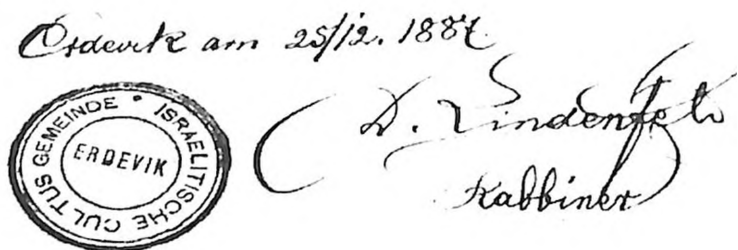 Erdevik am 25/12. 1887.
ISRAELITISCHE CULTUS GEMEINDE *
ERDEVIK
D. Lindenfeld
Rabbiner